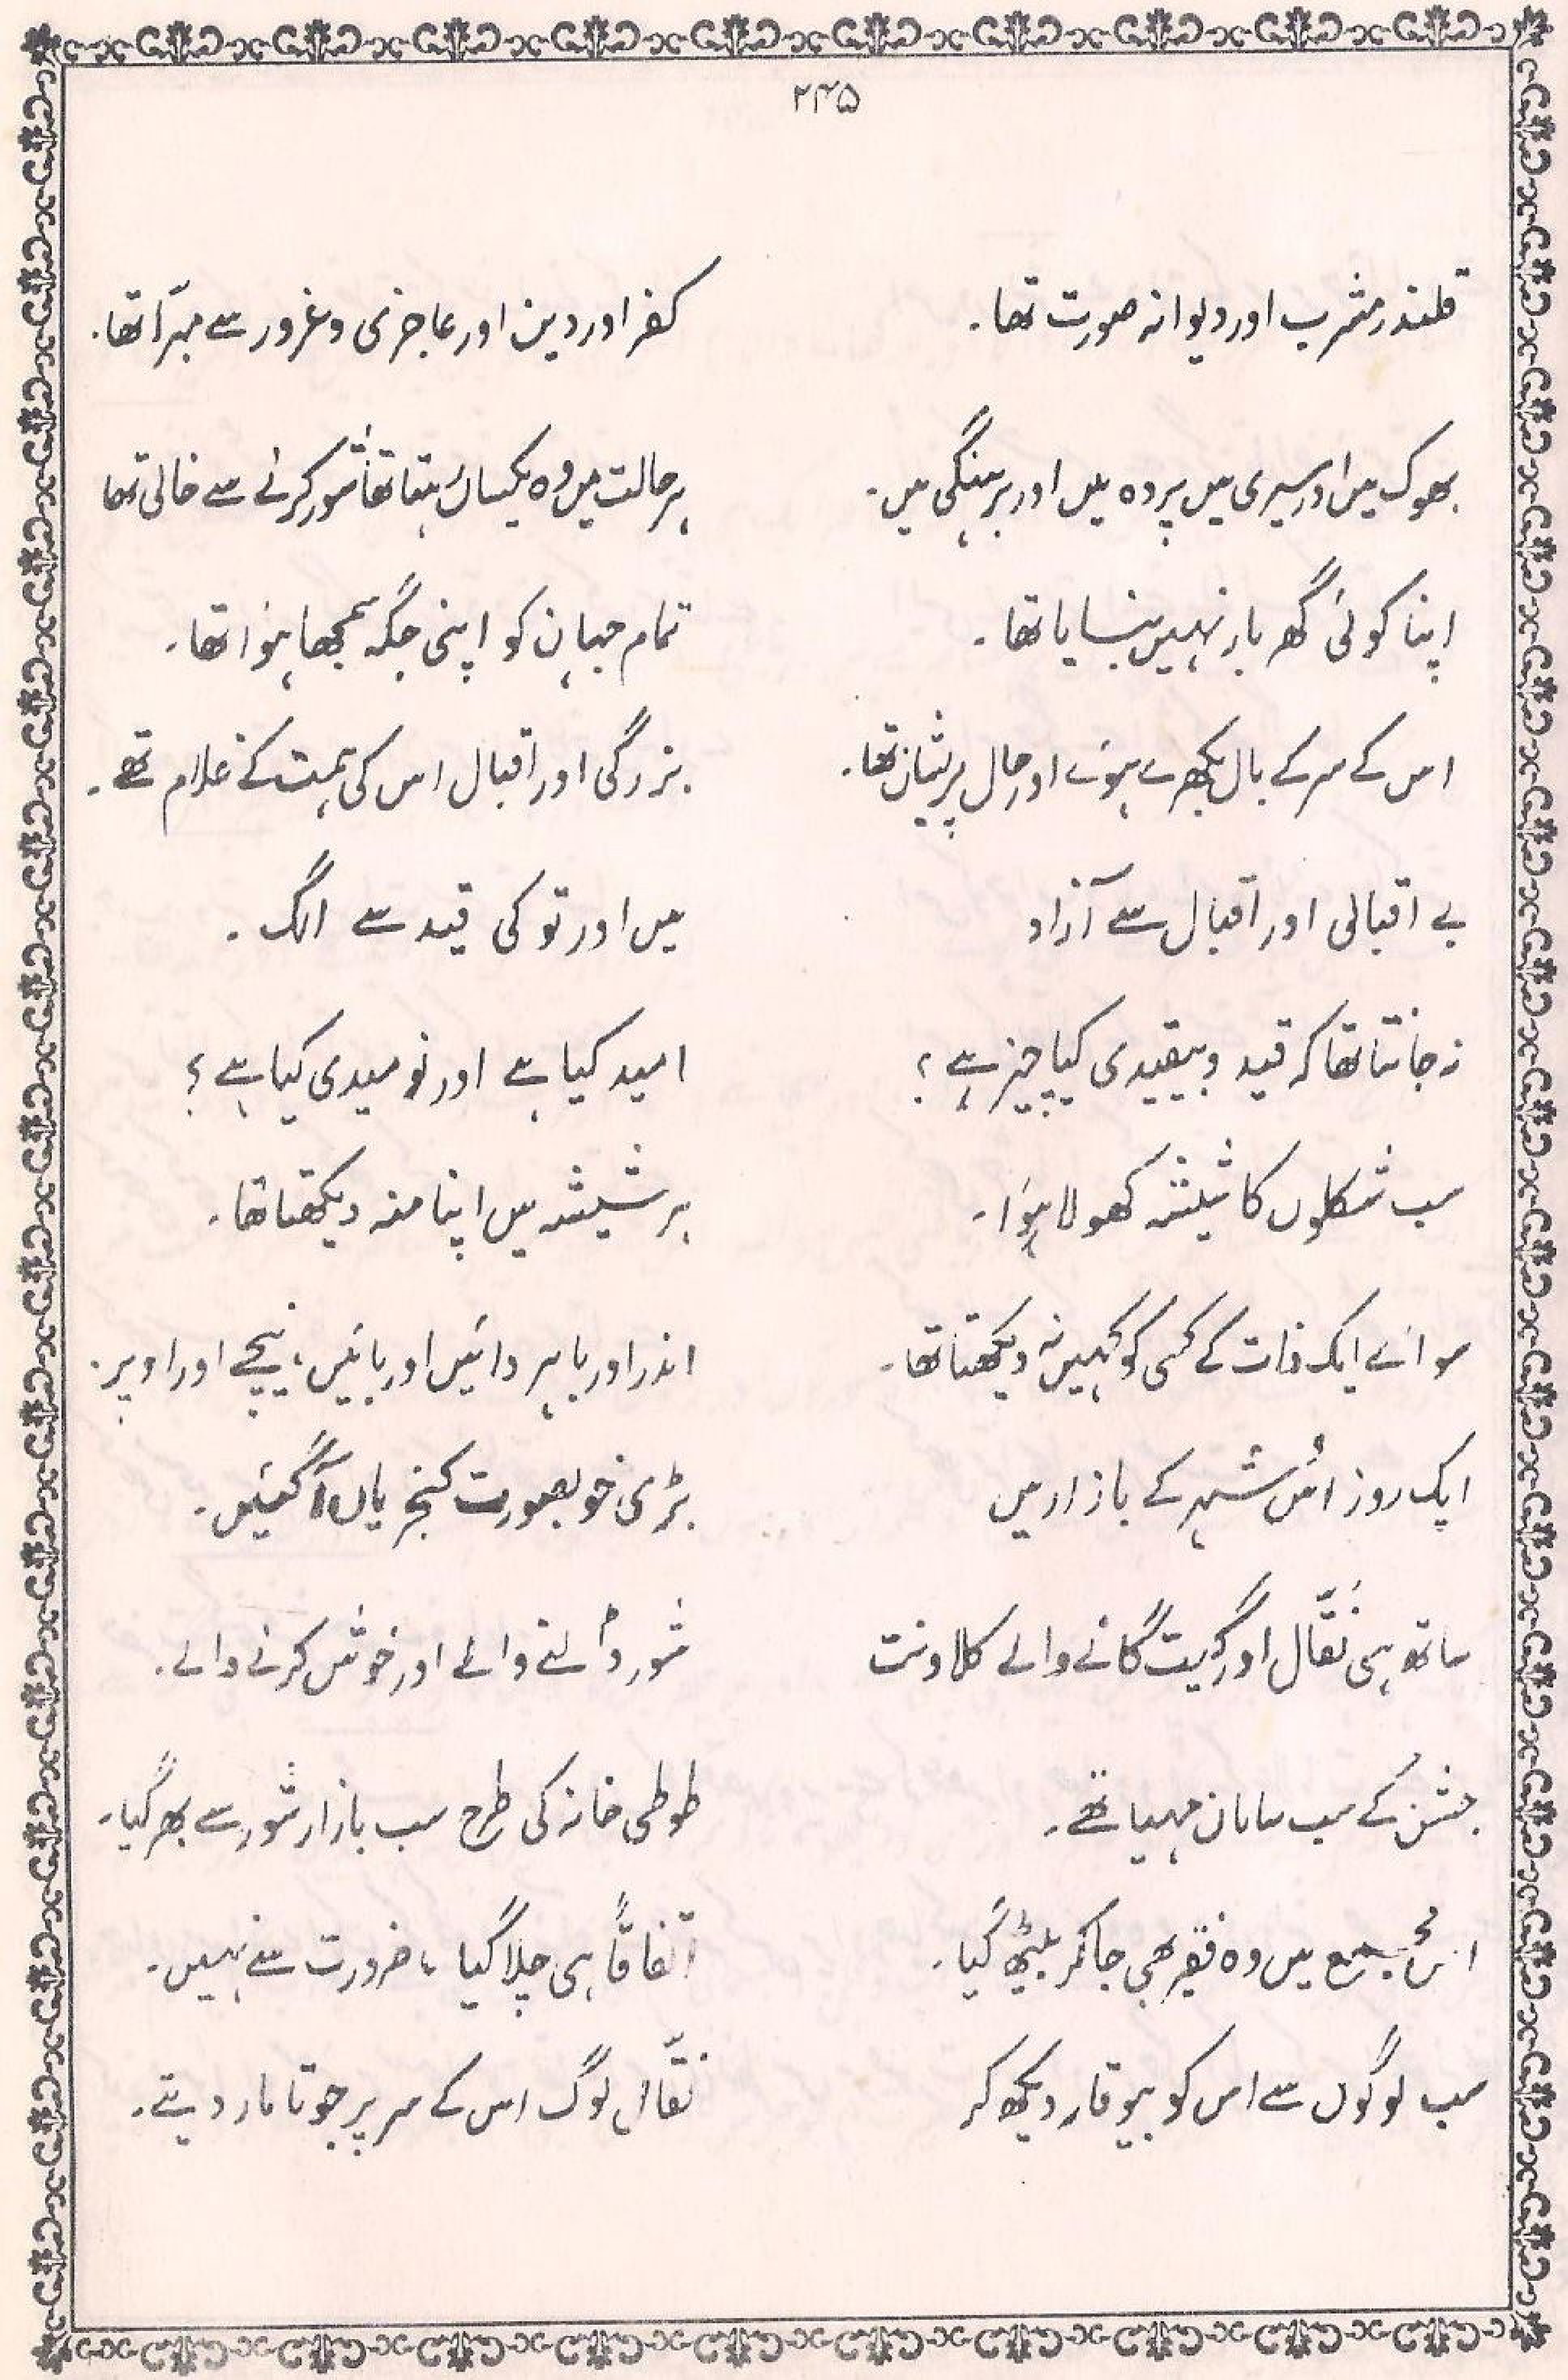 ۲۴۵
قلندر مشرب اور دیوانہ صورت تھا۔ کفر اور دین اور عاجزی و غرور سے مبرّا تھا۔
بھوک میں اور سیری میں پردہ میں اور برہنگی میں۔ ہر حالت میں وہ یکساں رہتا تھا شور کرنے سے خالی تھا
اپنا کوئی گھر بار نہیں بسایا تھا۔ تمام جہان کو اپنی جگہ سمجھا ہوا تھا۔
اس کے سر کے بال بکھرے ہوئے اور حال پریشان تھا۔ بزرگی اور اقبال اس کی ہمت کے غلام تھے۔
بے اقبالی اور اقبال سے آزاد میں اور تو کی قید سے الگ۔
نہ جانتا تھا کہ قید و بیقیدی کیا چیز ہے؟ امید کیا ہے اور نومیدی کیا ہے؟
سب شکلوں کا شیشہ کھولا ہوا۔ ہر شیشہ میں اپنا منہ دیکھتا تھا۔
سوائے ایک ذات کے کسی کو کہیں نہ دیکھتا تھا۔ اندر اور باہر دائیں اور بائیں، نیچے اور اوپر۔
ایک روز اُس شہر کے بازار میں بڑی خوبصورت کنجریاں آ گئیں۔
ساتھ ہی نَقّال اور گیت گانے والے کلاونت شور ڈالنے والے اور خوش کرنے والے۔
جشن کے سب سامان مہیا تھے۔ طوطی خانہ کی طرح سب بازار شور سے بھر گیا۔
اس مُجمع میں وہ فقیر بھی جا کر بیٹھ گیا۔ اتفاقاً ہی چلا گیا، ضرورت سے نہیں۔
سب لوگوں سے اس کو بیوقار دیکھ کر نقّال لوگ اس کے سر پر جوتا مار دیتے۔